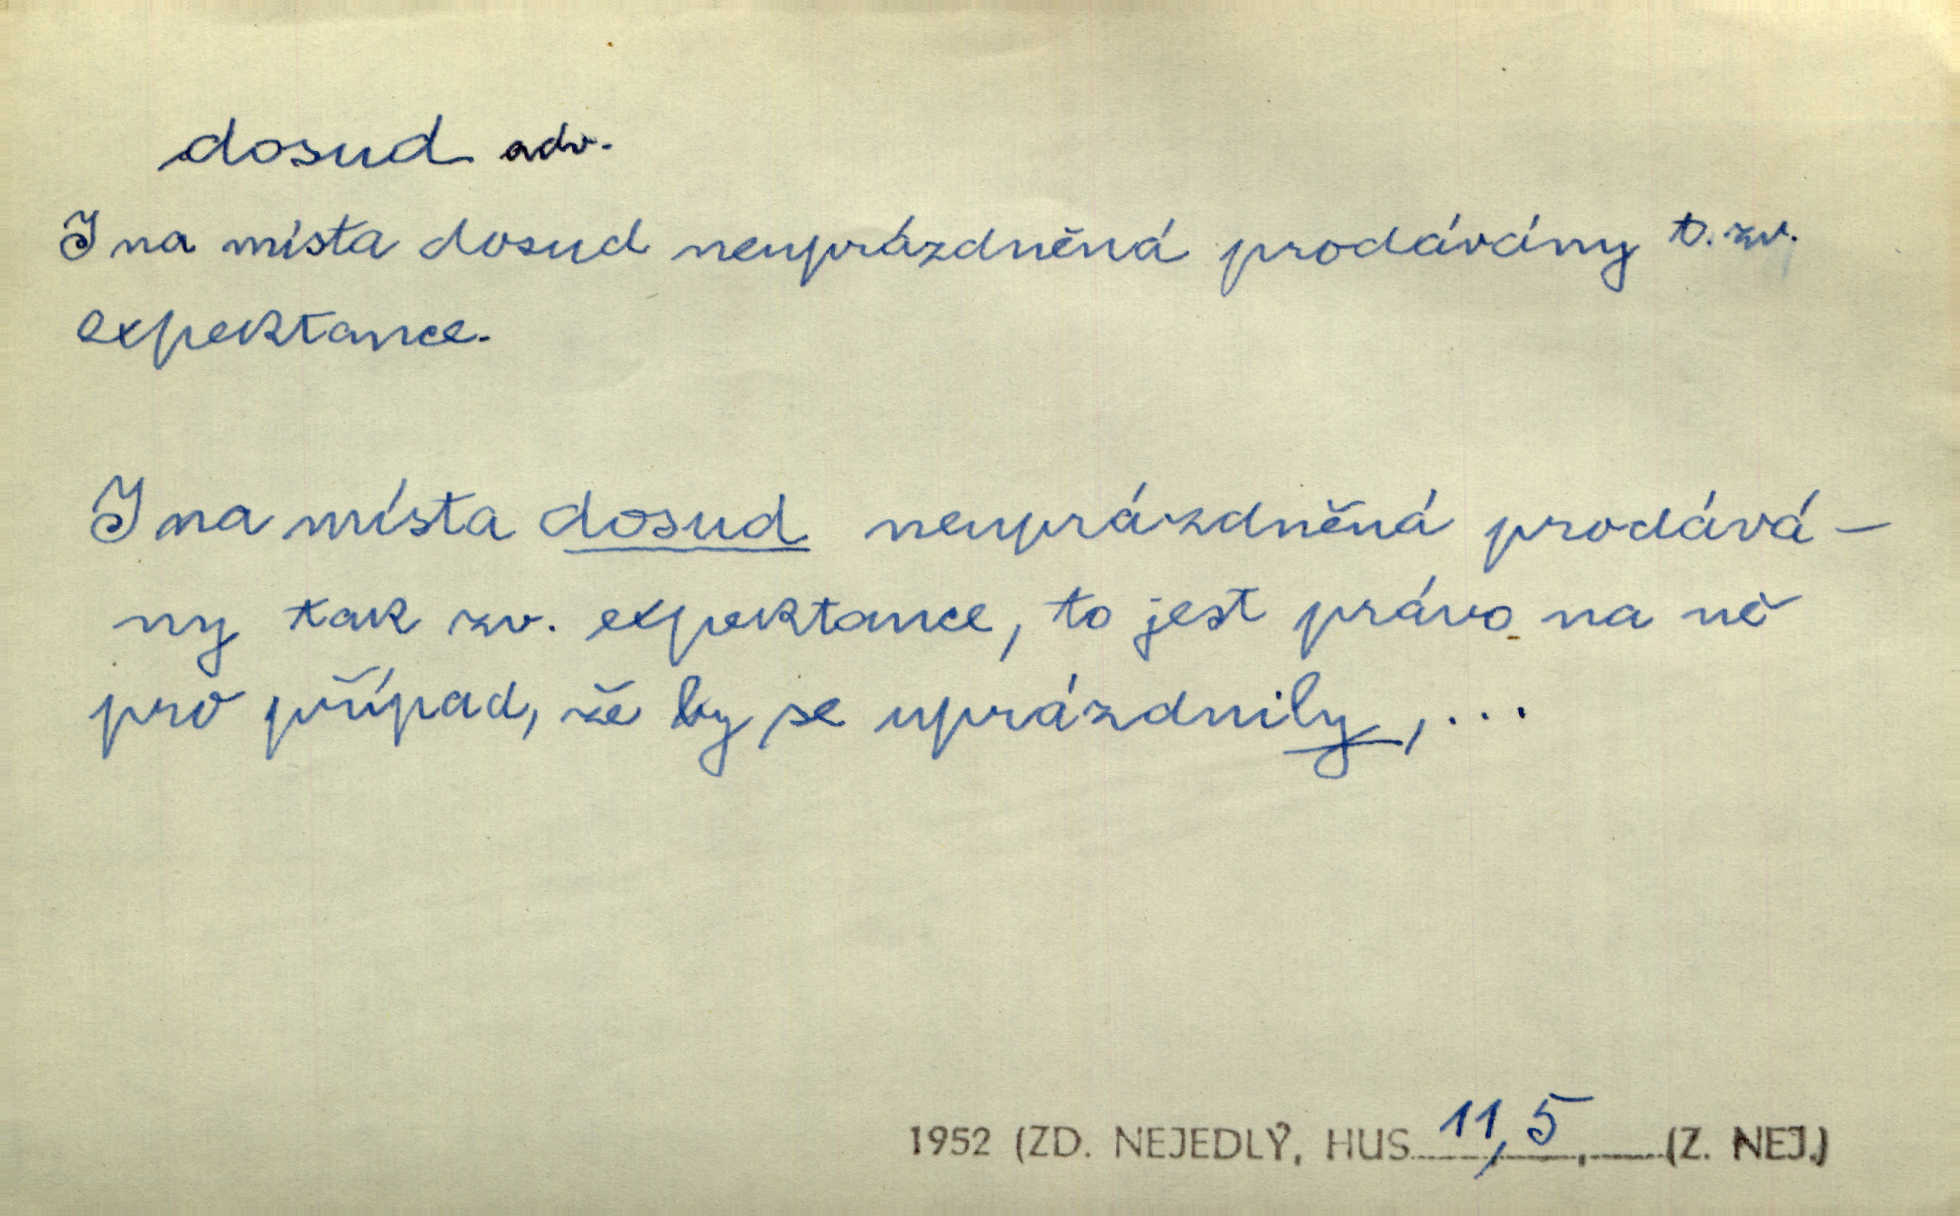 dosud adv.
I na místa dosud neuprázdněná prodávány t. zv.
expektance.
I na místa dosud neuprázdněná prodává-
ny tak zv. expektance, to jest právo na ně
pro případ, že by se uprázdnily, ...
1952 (ZD. NEJEDLÝ, HUS 11,5 , (Z. NEJ.)